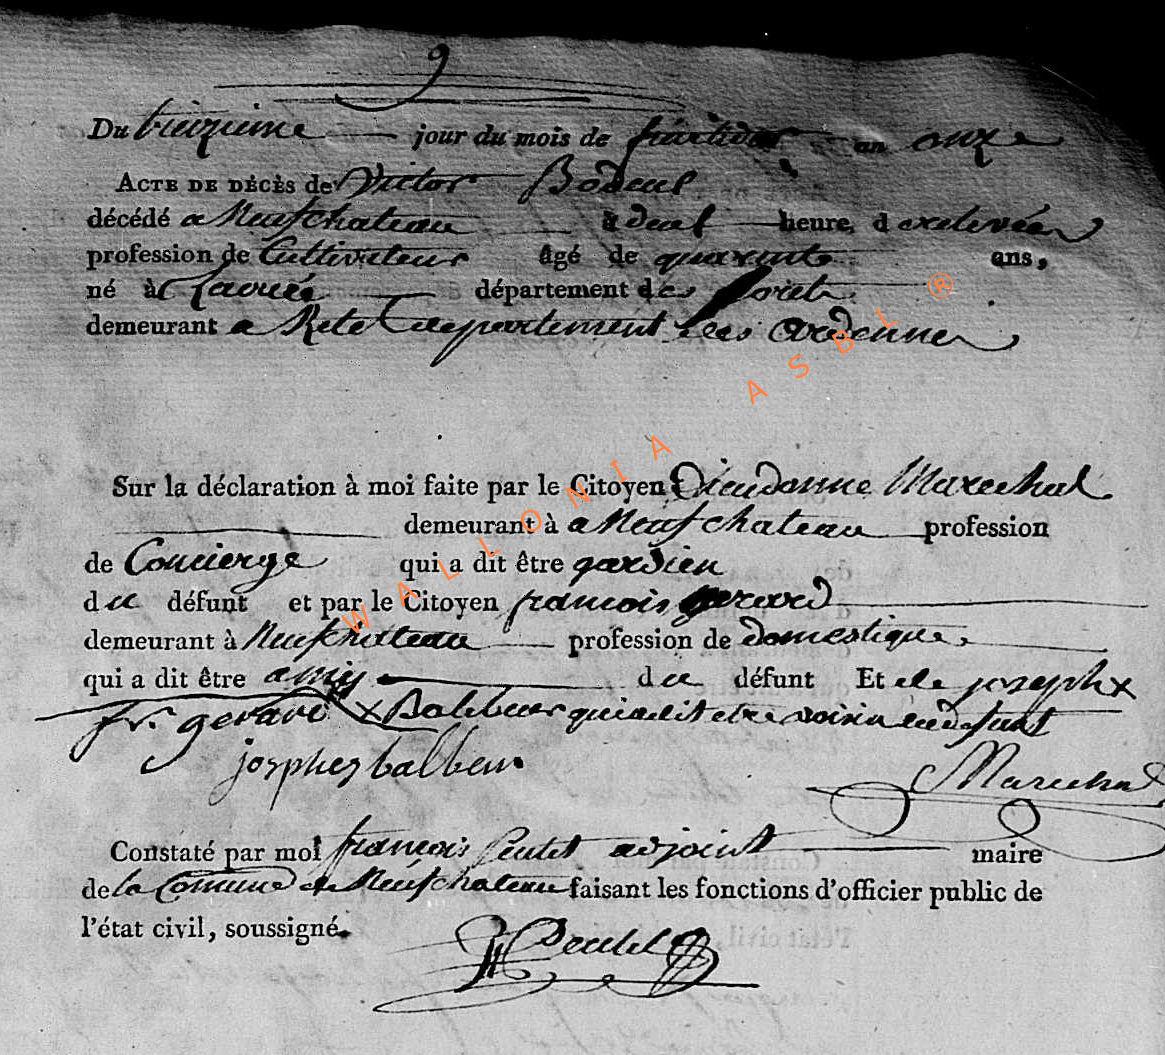 9
Du treizieme jour du mois de fructidor an onze
ACTE DE DÉCÈS de Victor Bodeul
décédé a Neufchateau à deux heure, d
profession de Cultivateur âgé de quarante ans,
né à département des forets
demeurant a Retel departement des ardennes
Sur la déclaration à moi faite par le Citoyen Dieudonne Marechal
demeurant à a Neufchateau profession
de Concierge qui a dit être gardien
du défunt et par le Citoyen francois gerard
demeurant à Neufchateau profession de domestique
qui a dit être amis du défunt Et de joseph x
fr. gerard x Balbeur qui a dit etre voisin du defunt
josphes balbeur
Marechal
Constaté par moi francois adjoint maire
de la Comune de Neufchateau faisant les fonctions d'officier public de
l'état civil, soussigné.
WALLONIA ASBL ®